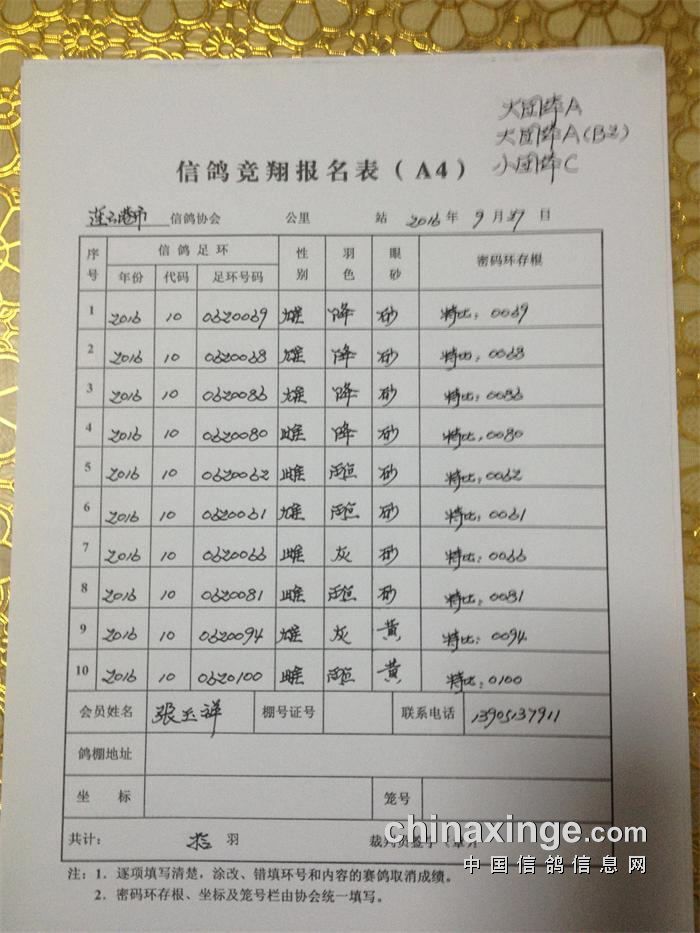 大团体A
大团体A(B2)
小团体C
信鸽竞翔报名表（A4）
连云港市 信鸽协会 公里 站 2016年 9月27日
序号 信鸽足环 性别 羽色 眼砂 密码环存根
年份 代码 足环号码
1 2016 10 0620069 雄 降 砂 特比：0069
2 2016 10 0620068 雄 降 砂 特比：0068
3 2016 10 0620086 雄 降 砂 特比：0086
4 2016 10 0620080 雌 降 砂 特比：0080
5 2016 10 0620062 雌 砂 特比：0062
6 2016 10 0620061 雄 砂 特比：0061
7 2016 10 0620066 雌 灰 砂 特比：0066
8 2016 10 0620081 雌 砂 特比：0081
9 2016 10 0620094 雄 灰 黄 特比：0094
10 2016 10 0620100 雌 黄 特比：0100
会员姓名 张玉祥 棚号证号 联系电话 13905137911
鸽棚地址
坐标 笼号
共计： 羽 裁判员签字（章）
注：1．逐项填写清楚，涂改、错填环号和内容的赛鸽取消成绩。
2．密码环存根、坐标及笼号栏由协会统一填写。
chinaxinge.com
中国信鸽信息网